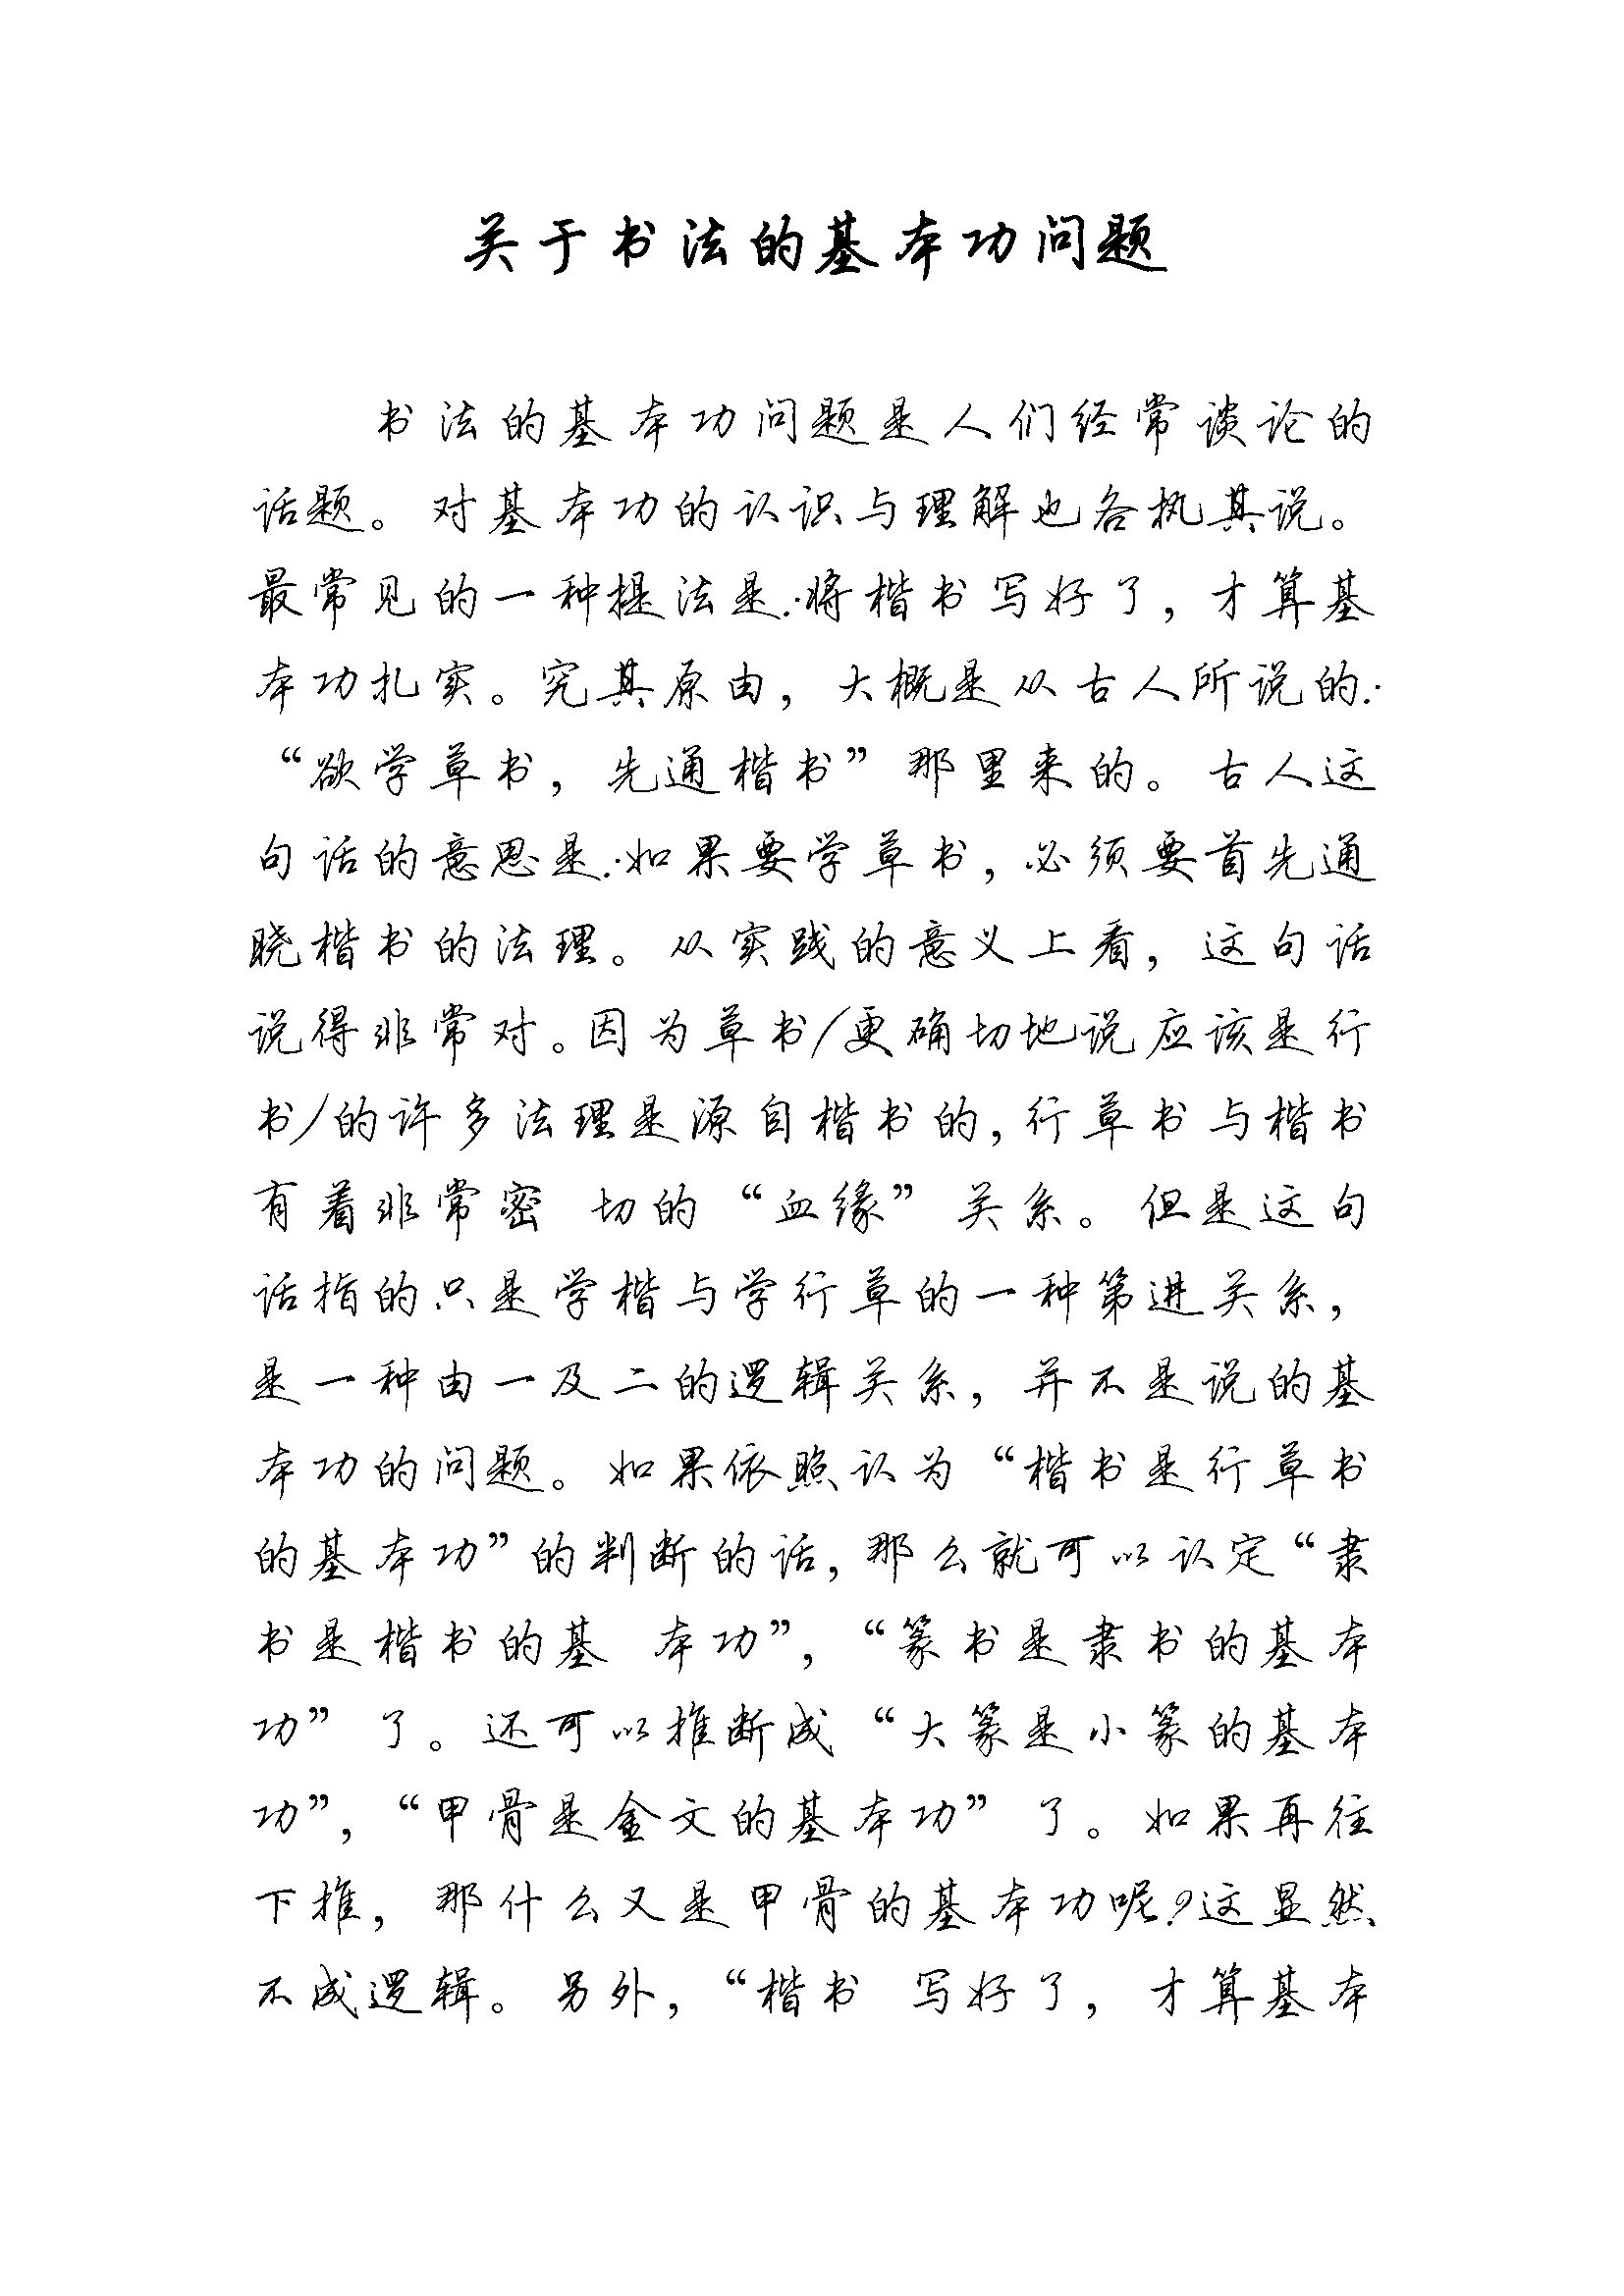 关于书法的基本功问题
书法的基本功问题是人们经常谈论的
话题。对基本功的认识与理解也各执其说。
最常见的一种提法是:将楷书写好了，才算基
本功扎实。究其原由，大概是从古人所说的:
“欲学草书，先通楷书”那里来的。古人这
句话的意思是:如果要学草书，必须要首先通
晓楷书的法理。从实践的意义上看，这句话
说得非常对。因为草书/更确切地说应该是行
书/的许多法理是源自楷书的，行草书与楷书
有着非常密 切的“血缘”关系。但是这句
话指的只是学楷与学行草的一种第进关系，
是一种由一及二的逻辑关系，并不是说的基
本功的问题。如果依照认为“楷书是行草书
的基本功”的判断的话，那么就可以认定“隶
书是楷书的基 本功”，“篆书是隶书的基本
功”了。还可以推断成“大篆是小篆的基本
功”，“甲骨是金文的基本功”了。如果再往
下推，那什么又是甲骨的基本功呢?这显然
不成逻辑。另外，“楷书 写好了，才算基本